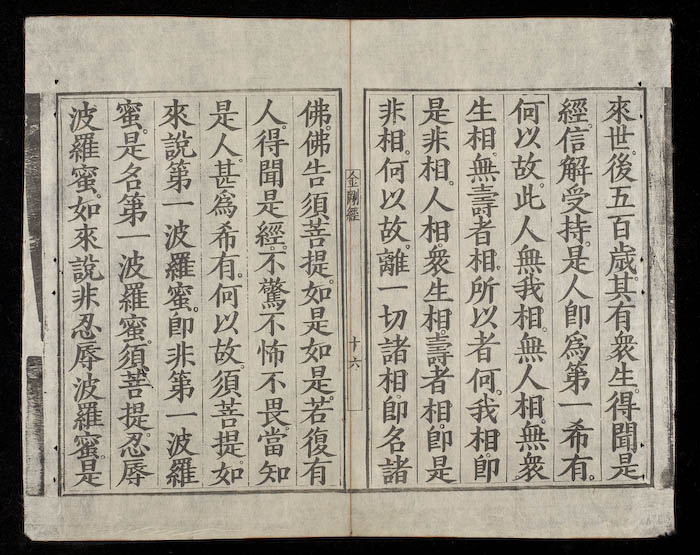 來世。後五百歲。其有衆生。得聞是
經。信解受持。是人卽爲第一希有。
何以故。此人無我相。無人相。無衆
生相。無壽者相。所以者何。我相卽
是非相。人相。衆生相。壽者相。卽是
非相。何以故。離一切諸相。卽名諸
金剛經
十六
佛。佛告須菩提。如是如是。若復有
人。得聞是經。不驚不怖不畏。當知
是人。甚爲希有。何以故。須菩提。如
來說第一波羅蜜。卽非第一波羅
蜜。是名第一波羅蜜。須菩提。忍辱
波羅蜜。如來說非忍辱波羅蜜。是